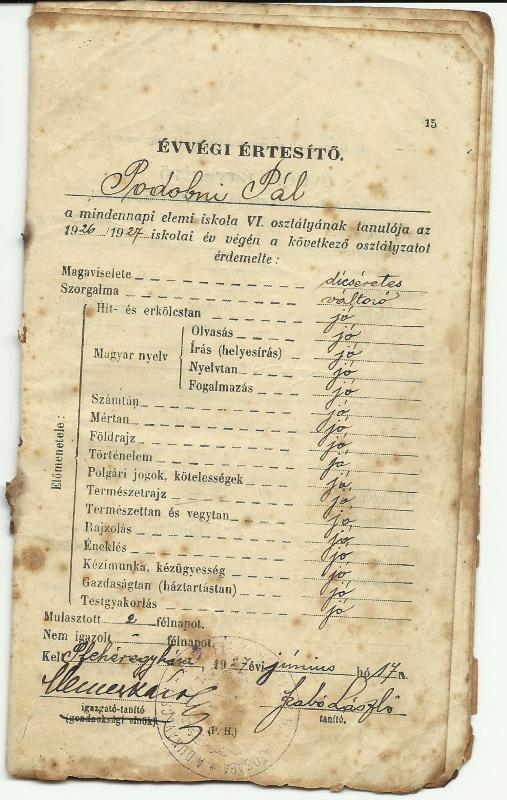 15
ÉVVÉGI ÉRTESÍTŐ.
Podobni Pál
a mindennapi elemi iskola VI. osztályának tanulója az
1926/1927 iskolai év végén a következő osztályzatot
érdemelte:
Magaviselete dícséretes
Szorgalma változó
Előmenetele:
Hit- és erkölcstan jó
Magyar nyelv
Olvasás jó
Írás (helyesírás) jó
Nyelvtan jó
Fogalmazás jó
Számtan jó
Mértan jó
Földrajz jó
Történelem jó
Polgári jogok, kötelességek jó
Természetrajz jó
Természettan és vegytan jó
Rajzolás jó
Éneklés jó
Kézimunka, kézügyesség jó
Gazdaságtan (háztartástan) jó
Testgyakorlás jó
Mulasztott 2 félnapot.
Nem igazolt - félnapot.
Kelt Pfehéregyháza, 1927 évi június hó 17 n.
Szabó László
igazgató-tanító
(gondnoksági elnök)
(P. H.)
tanító.